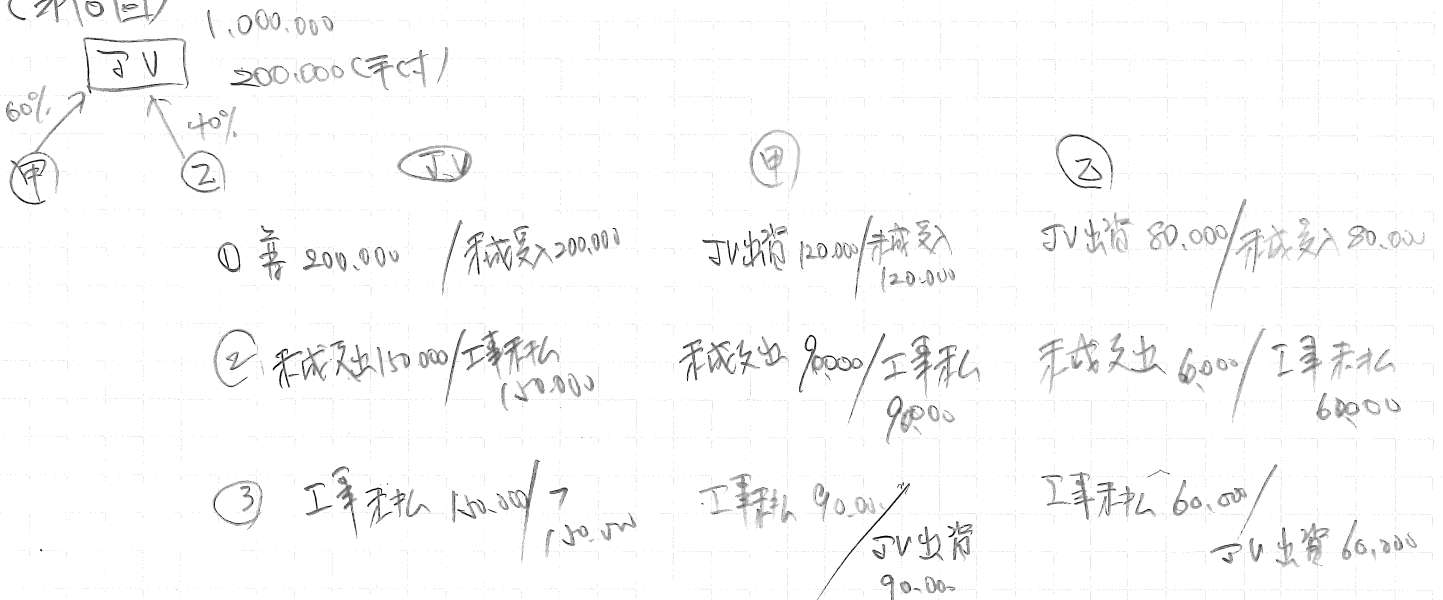 (第10回)
1.000.000
JV
200.000(手付)
60%
40%
甲
乙
J.V
甲
乙
① 普 200.000 / 未成受入 200.000
JV出資 120.000 / 未成受入
120.000
JV出資 80.000 / 未成受入 80.000
② 未成支出 150.000 / 工事未払
150.000
未成支出 90000 / 工事未払
90000
未成支出 6,000 / 工事未払
60000
③ 工事未払 150.000 /
150.000
工事未払 90.00
JV出資
90.00
工事未払 60.000 /
JV出資 60,000